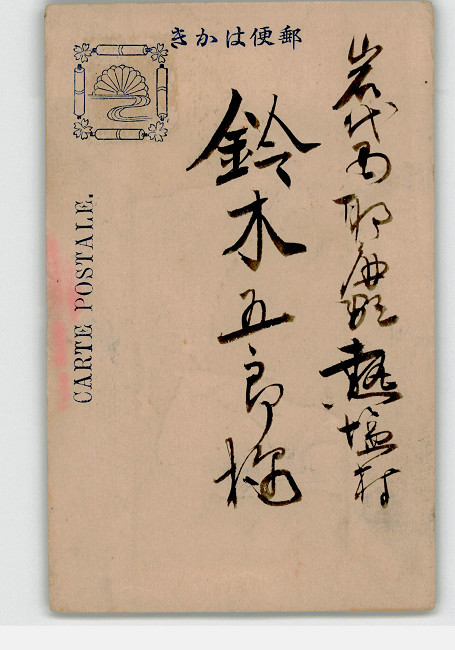 郵便はかき
岩代国耶麻郡熱塩村
鈴木五郎様
CARTE POSTALE.